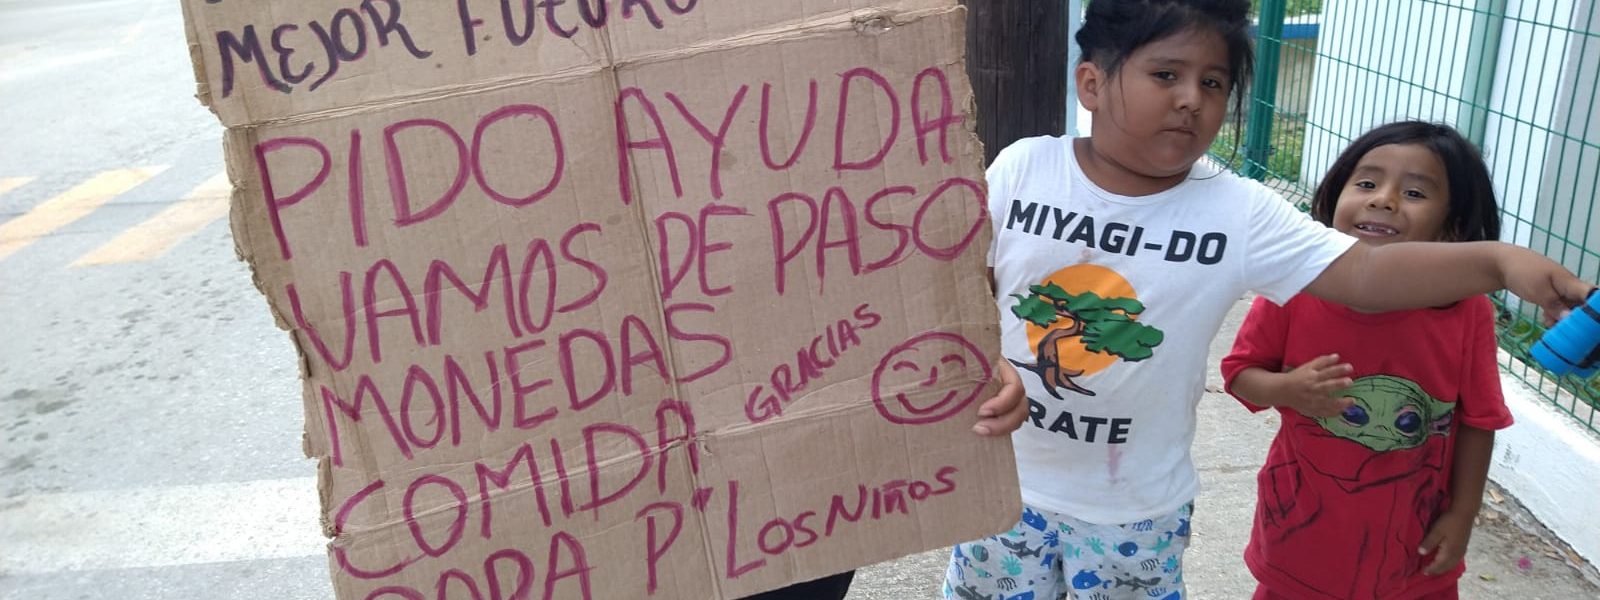 MEJOR FUTURO
PIDO AYUDA
VAMOS DE PASO
MONEDAS
GRACIAS
COMIDA
ROPA P' LOS NIÑOS
MIYAGI-DO
RATE